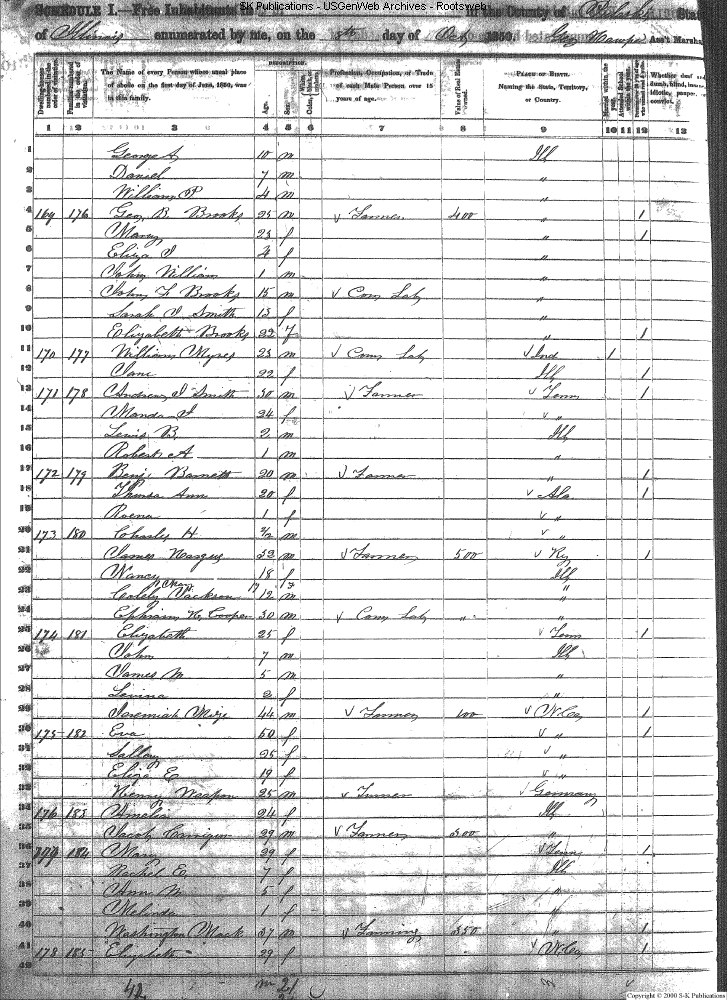 S-K Publications - USGenWeb Archives - Rootsweb
SCHEDULE I.—Free Inhabitants in in the County of State
of Illinois enumerated by me, on the 8th day of Oct 1850. Ass't Marshal
DESCRIPTION.
Dwelling-houses numbered in the order of visitation.
Families numbered in the order of visitation.
The Name of every Person whose usual place of abode on the first day of June, 1850, was in this family.
Age.
Sex.
Profession, Occupation, or Trade of each Male Person over 15 years of age.
Value of Real Estate owned.
PLACE OF BIRTH. Naming the State, Territory, or Country.
Married within the year.
Attended School within the year.
Whether deaf and dumb, blind, insane, idiotic, pauper, or convict.
1 2 3 4 5 6 7 8 9 10 11 12 13
1 George A 10 m Ill
2 Daniel 7 m "
3 William P 4 m "
4 169 176 Geo. B. Brooks 25 m v Farmer 400 " 1
5 Mary 23 f " 1
6 Eliza J 4 f "
7 John William 1 m "
8 John H Brooks 15 m v Com Lab "
9 Sarah J Smith 13 f "
10 Elizabeth Brooks 22 f " 1
11 170 177 William Myres 23 m v Com Lab v Ind 1
12 Jane 22 f Ill 1
13 171 178 Andrew J Smith 30 m v Farmer v Tenn 1
14 Manda J 24 f v "
15 Lewis B. 2 m Ill
16 Robert A 1 m "
17 172 179 Benj Barnett 20 m v Farmer " 1
18 Ann 20 f v Ala 1
19 1 f v "
20 173 180 Charles H m v "
21 James 32 m v Farmer 500 v Ky 1
22 Nancy 18 f Ill
23 Jackson 12 m "
24 Ephraim H. Cooper 30 m v Com Lab " "
25 174 181 Elizabeth 25 f v Tenn 1
26 John 7 m Ill
27 James M 5 m "
28 Lavina 2 f "
29 Jeremiah Mize 44 m v Farmer 100 v N Ca 1
30 175 182 Eva 50 f v " 1
31 Sallay 25 f v "
32 Eliza E 19 f v "
33 Henry 25 m v v Germany
34 176 183 Amelia 24 f Ill
35 Jacob 29 m v Farmer 300 "
36 184 Mary 29 f v Tenn 1
37 Rachel E. 7 f Ill
38 Ann M 5 f "
39 Melinda 1 f "
40 Washington Mack 37 m v Farming 350 " 1
41 178 185 Elizabeth 29 f v N Ca 1
42
42 m 21
Copyright © 2000 S-K Publications